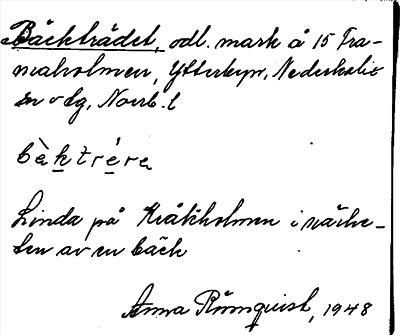 Bäckträdet, odl. mark å 15 Tra-
naholmen, Ytterbyn, Nederkalix
sn o dg, Norrb. l
bàktrére
Linda på Kråkholmen i närhe-
ten av en bäck
Anna Rönnquist, 1948